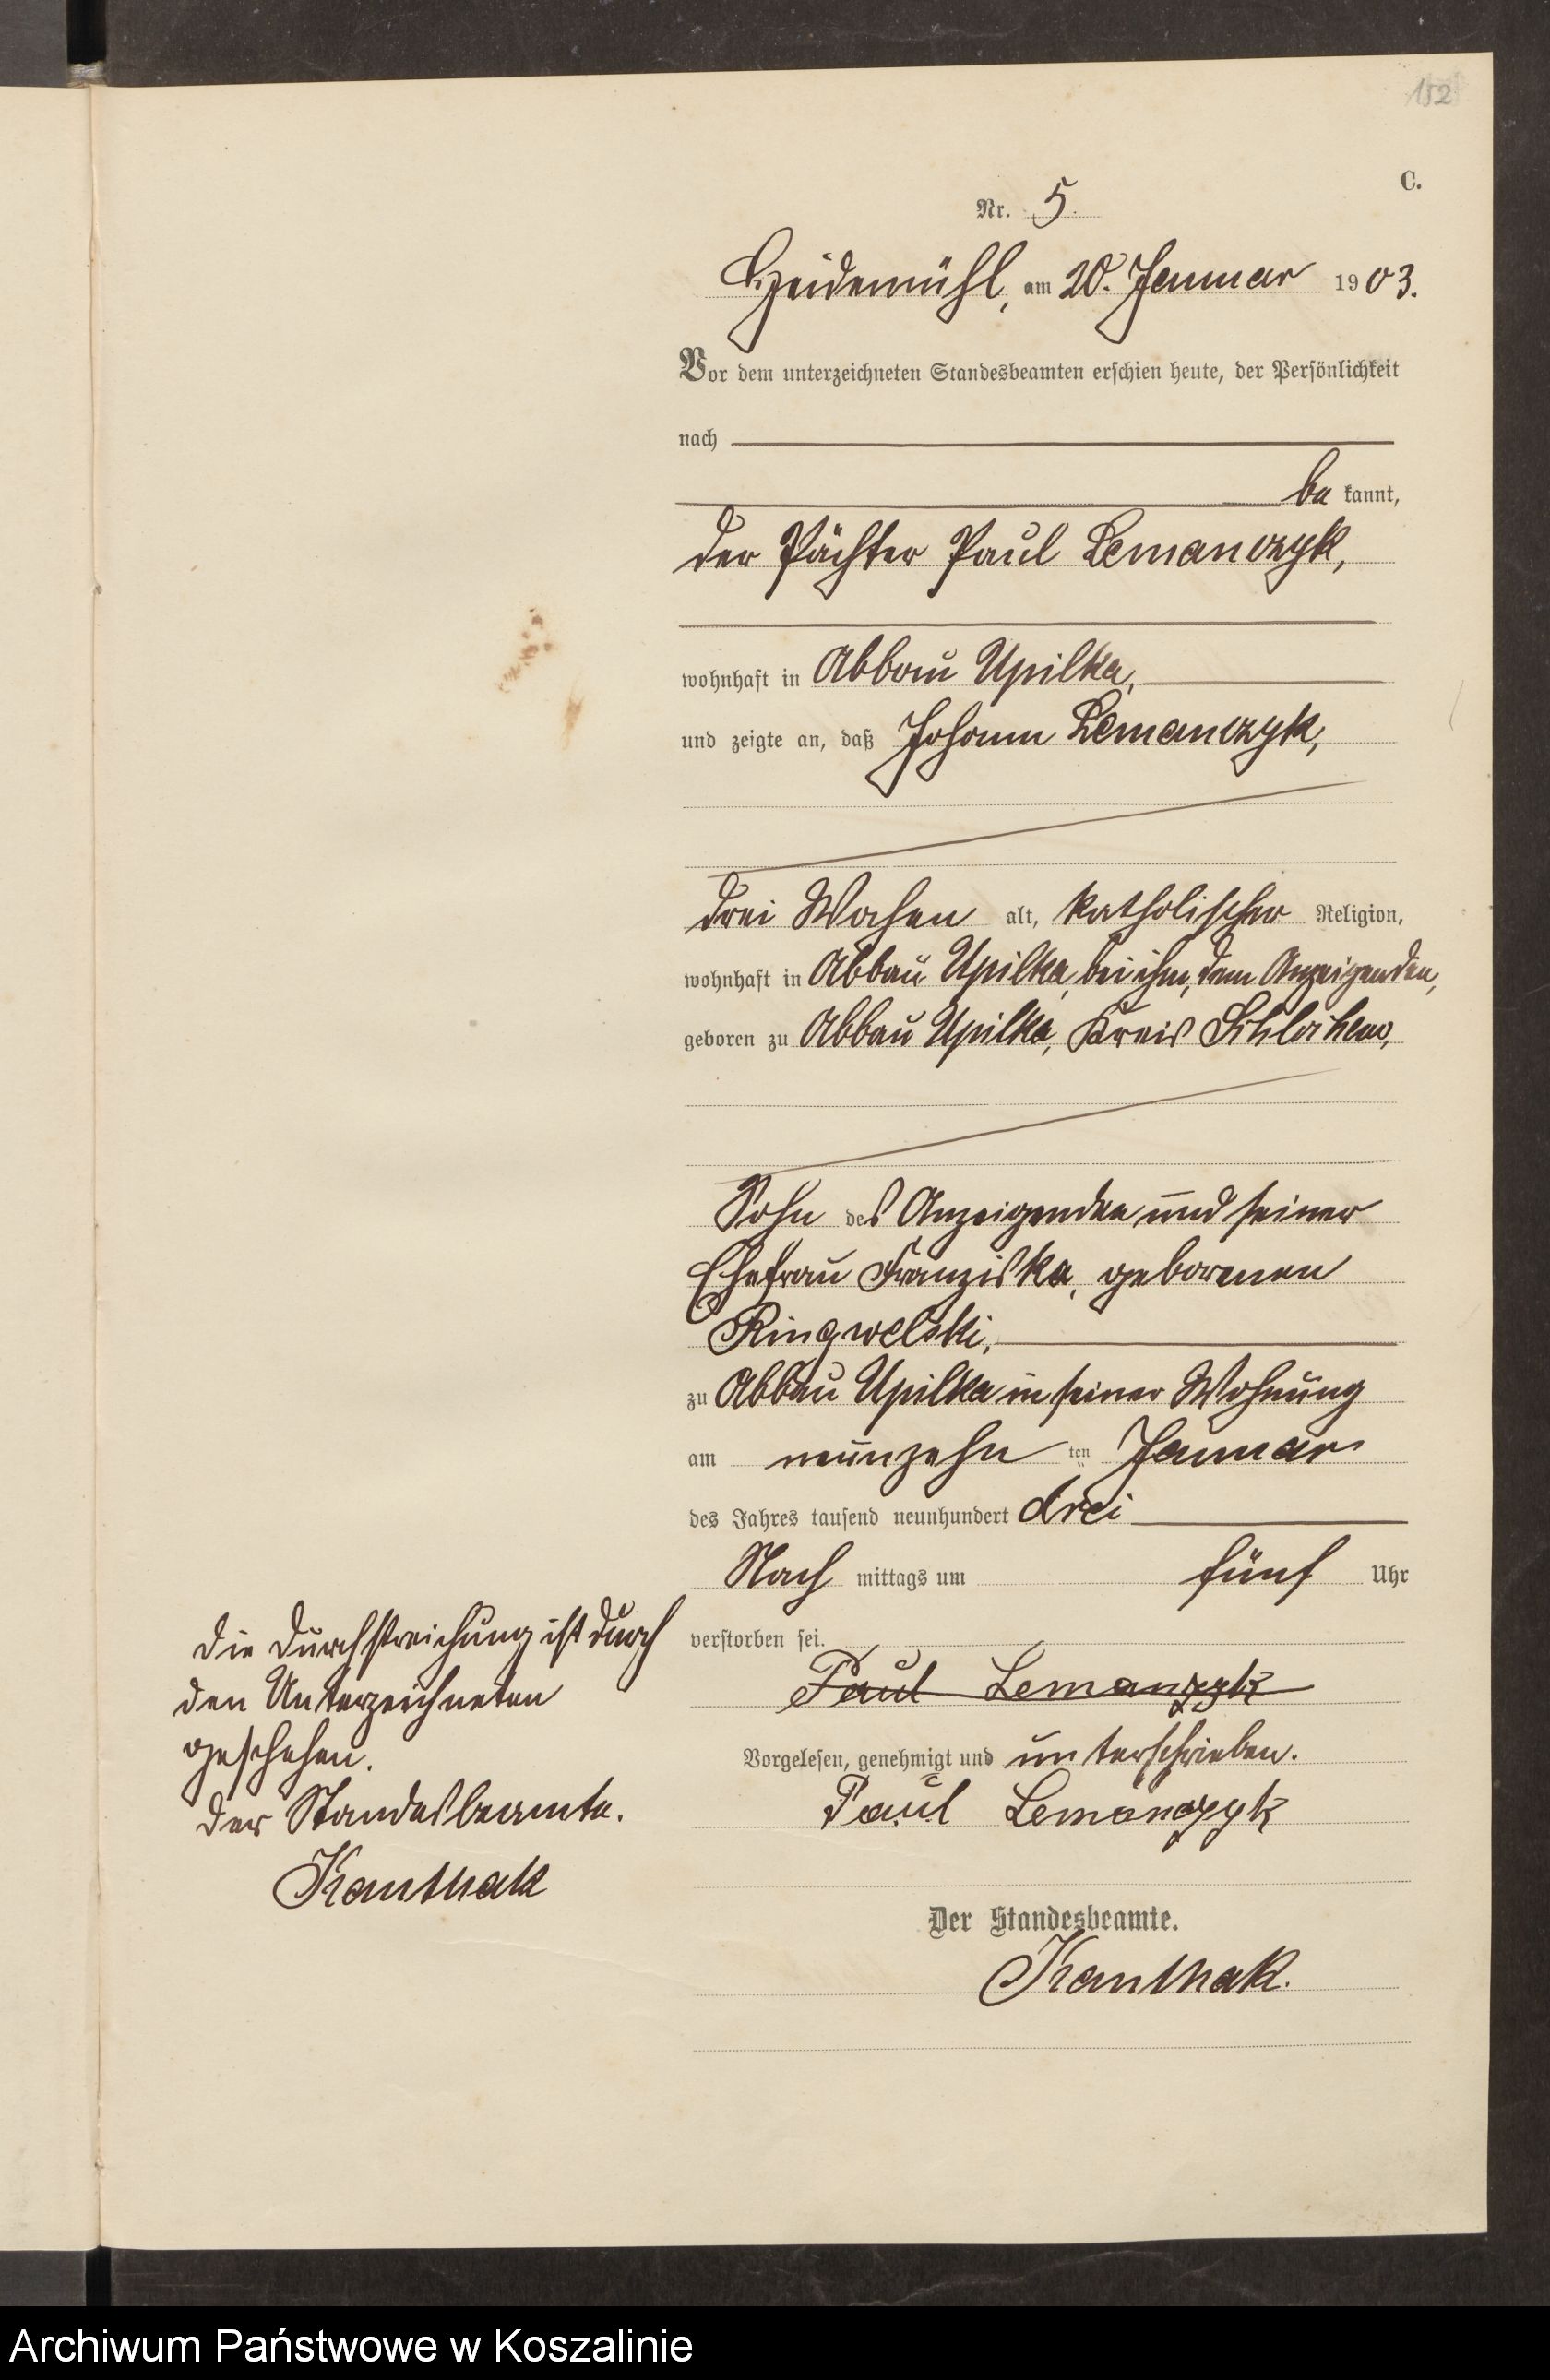 152
C.
Nr. 5.
Heidemühl, am 20. Januar 1903.
Vor dem unterzeichneten Standesbeamten erschien heute, der Persönlichkeit
nach
be kannt,
der Pächter Paul Lemanczyk,
wohnhaft in Abbau Upilka,
und zeigte an, daß Johann Lemanczyk,
drei Wochen alt, katholischer Religion,
wohnhaft in Abbau Upilka, bei ihm, dem Anzeigenden,
geboren zu Abbau Upilka, Kreis Schlochau,
Sohn des Anzeigenden und seiner
Ehefrau Franziska, geborenen
Ringwelski,
zu Abbau Upilka in seiner Wohnung
am neunzehn ten Januar
des Jahres tausend neunhundert drei
Nach mittags um fünf Uhr
verstorben sei.
Paul Lemanzyk
Vorgelesen, genehmigt und unterschrieben.
Paul Lemanczyk
Der Standesbeamte.
Kanthak.
Die Durchstreichung ist durch
den Unterzeichneten
geschehen.
Der Standesbeamte.
Kanthak
Archiwum Państwowe w Koszalinie